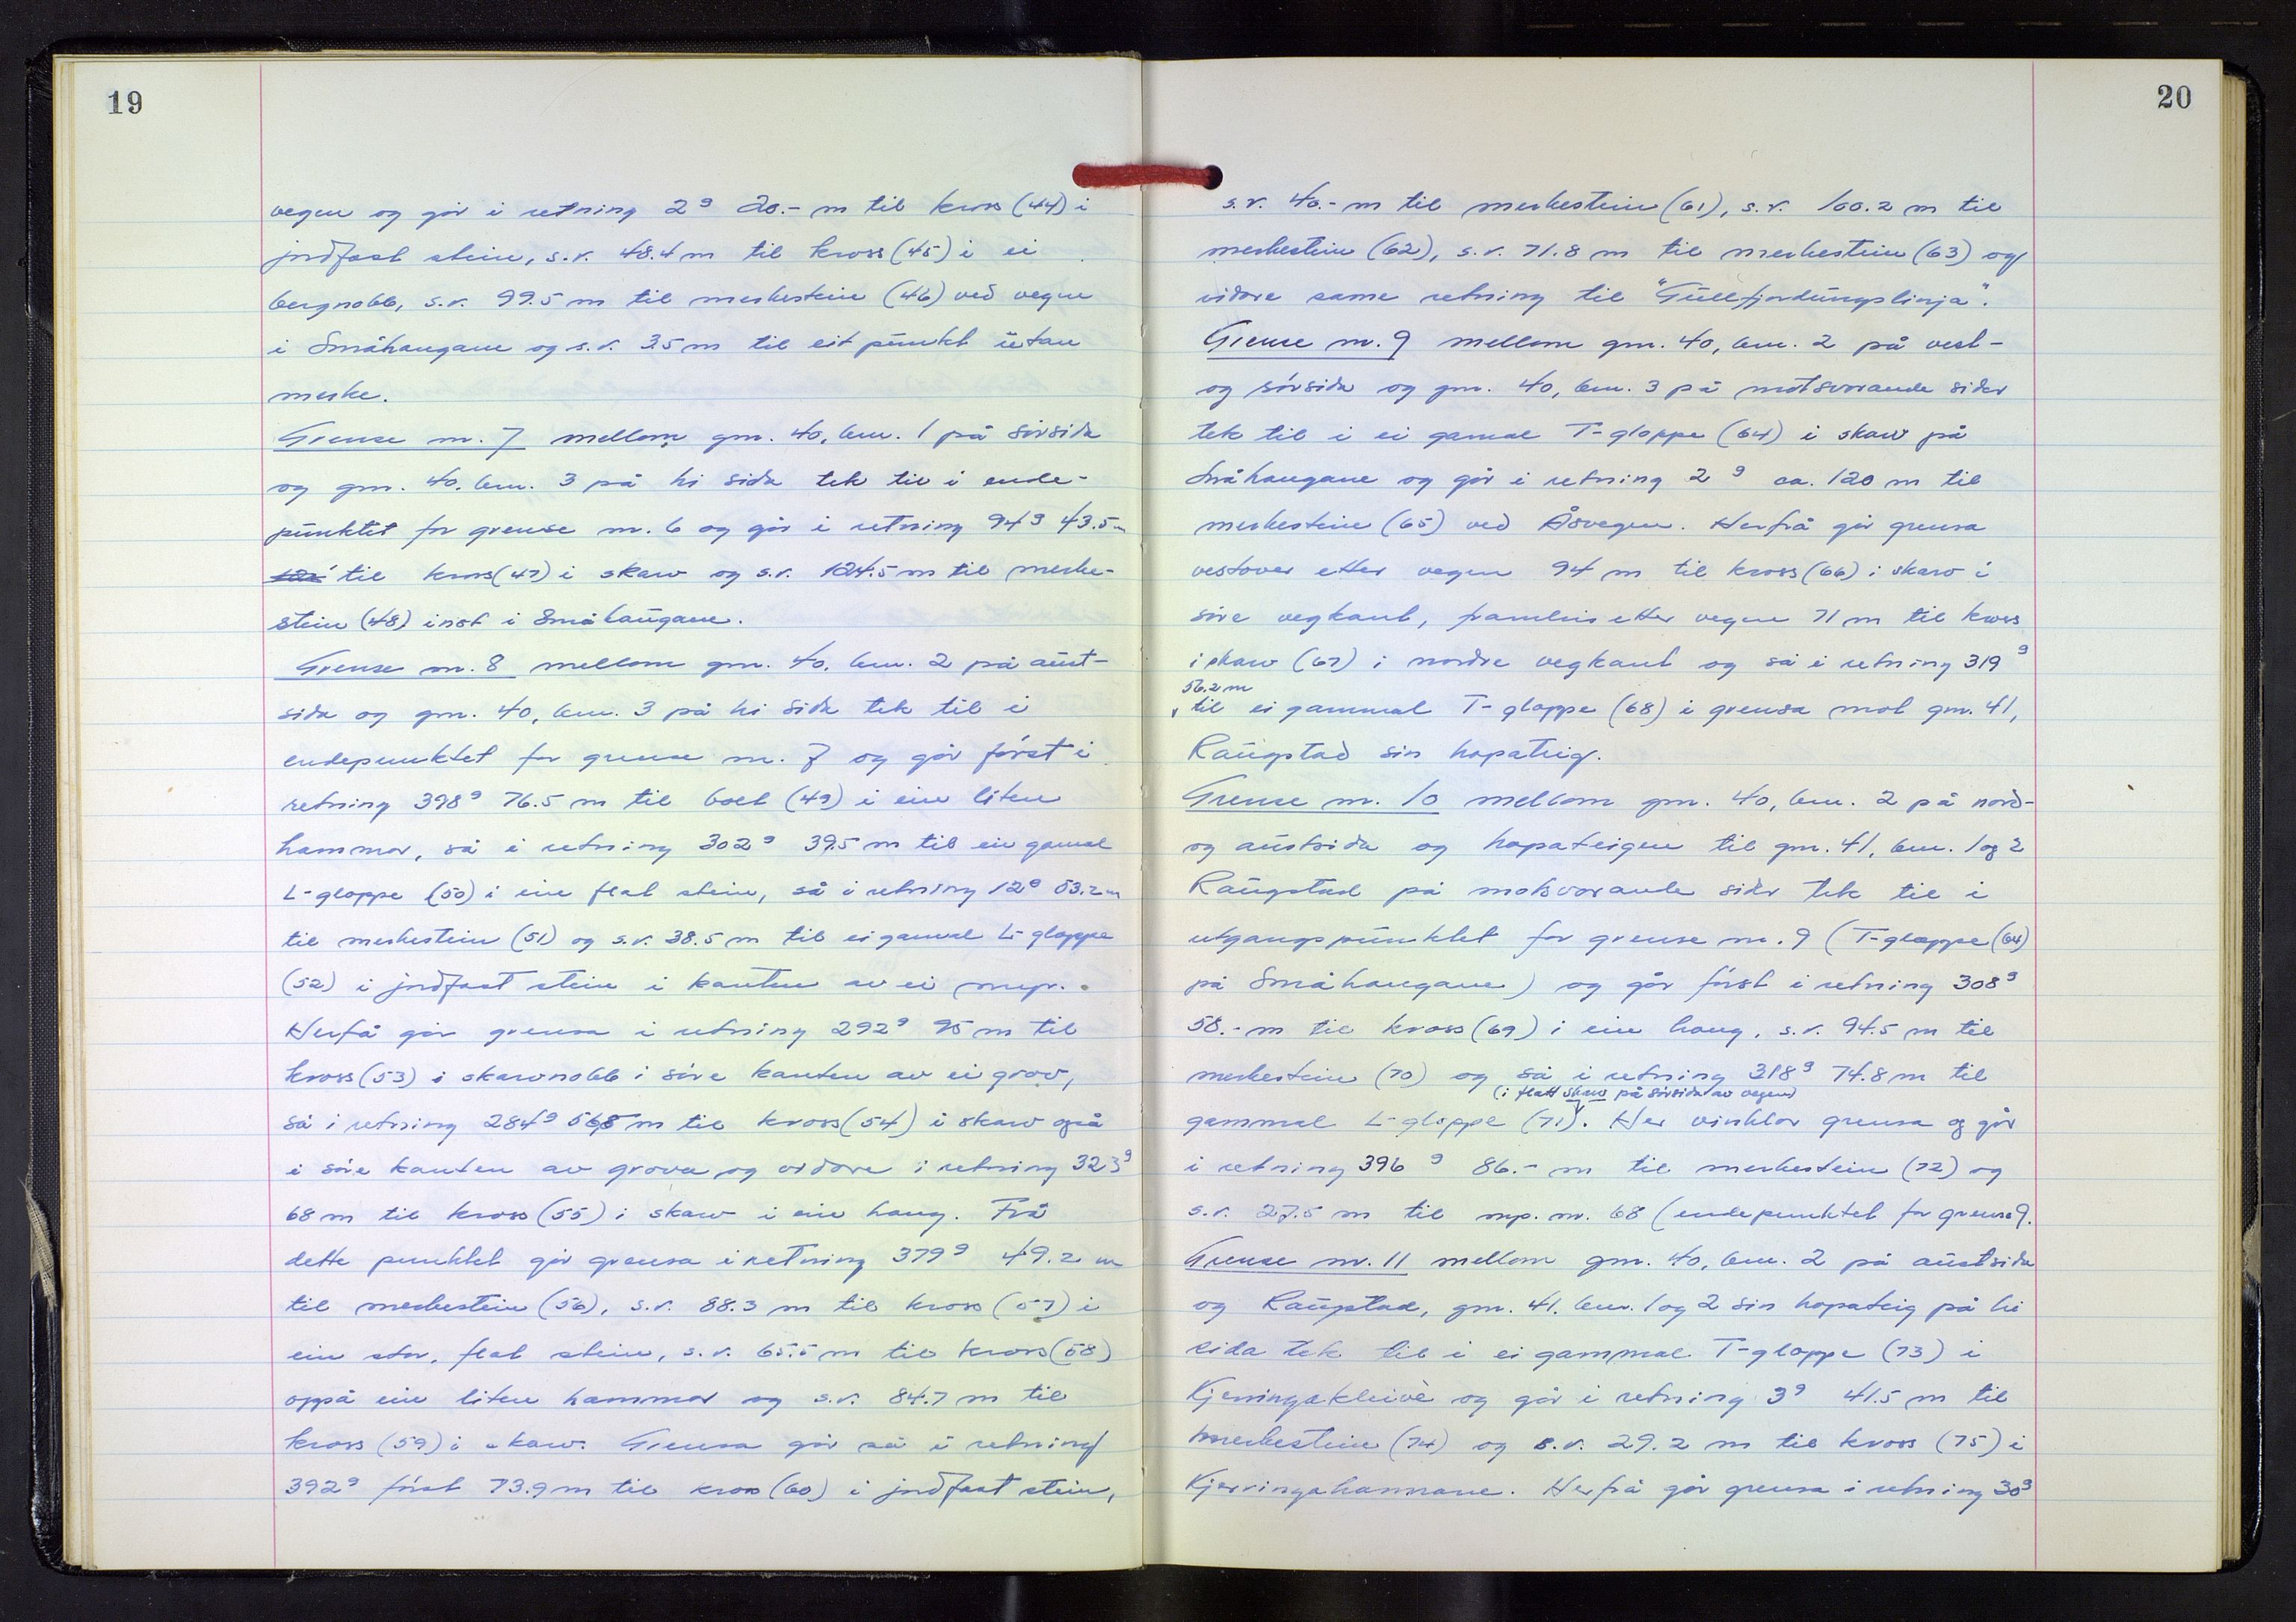 19
vegen og går i retning 2g 20.- m til kross (44) i
jordfast stein, s.r. 48.4 m til kross (45) i ei
bergnobb, s.r. 99.5 m til merkestein (46) ved vegen
i Småhaugane og s.r. 35 m til eit punkt utan
merke.
Grense nr. 7 mellom gnr. 40, bnr. 1 på sørsida
og gnr. 40, bnr. 3 på hi sida tek til i ende-
punktet for grense nr. 6 og går i retning 94g 43.5 m
til kross (47) i skarv og s.r. 124.5 m til merke-
stein (48) inst i Småhaugane.
Grense nr. 8 mellom gnr. 40, bnr. 2 på aust-
sida og gnr. 40, bnr. 3 på hi sida tek til i
endepunktet for grense nr. 7 og går først i
retning 398g 76.5 m til bolt (49) i ein liten
hammar, så i retning 302g 39.5 m til ein gamal
L-gloppe (50) i ein flat stein, så i retning 12g 53.2 m
til merkestein (51) og s.r. 38.5 m til ei gamal L-gloppe
(52) i jordfast stein i kanten av ei myr.
Herfrå går grensa i retning 292g 95 m til
kross (53) i skarvnobb i søre kanten av ei grov,
så i retning 284g 56.5 m til kross (54) i skarv også
i søre kanten av grova og vidare i retning 323g
68 m til kross (55) i skarv i ein haug. Frå
dette punktet går grensa i retning 379g 49.2 m
til merkestein (56), s.r. 88.3 m til kross (57) i
ein stor, flat stein, s.r. 65.5 m til kross (58)
oppå ein liten hammar og s.r. 84.7 m til
kross (59) i skarv. Grensa går så i retning
392g først 73.9 m til kross (60) i jordfast stein,
20
s.r. 40.- m til merkestein (61), s.r. 100.2 m til
merkestein (62), s.r. 71.8 m til merkestein (63) og
vidare same retning til "Gullfjordungslinja".
Grense nr. 9 mellom gnr. 40, bnr. 2 på vest-
og sørsida og gnr. 40, bnr. 3 på motsvarande sider
tek til i ei gamal T-gloppe (64) i skarv på
Småhaugane og går i retning 2g ca. 120 m til
merkestein (65) ved Åsvegen. Herfrå går grensa
vestover etter vegen 94 m til kross (66) i skarv i
søre vegkant, framleis etter vegen 71 m til kross
i skarv (67) i nordre vegkant og så i retning 319g
56.2 m
til ei gammal T-gloppe (68) i grensa mot gnr. 41,
Raugstad sin hopateig.
Grense nr. 10 mellom gnr. 40, bnr. 2 på nord-
og austsida og hopateigen til gnr. 41, bnr. 1 og 2
Raugstad på motsvarande sider tek til i
utgangspunktet for grense nr. 9 (T-gloppe (64)
på Småhaugane) og går først i retning 308g
58.- m til kross (69) i ein haug, s.r. 94.5 m til
merkestein (70) og så i retning 318g 74.8 m til
(i flatt skarv på sørsida av vegen)
gammal L-gloppe (71). Her vinklar grensa og går
i retning 396g 86.- m til merkestein (72) og
s.r. 27.5 m til mp. nr. 68 (endepunktet for grense 9.
Grense nr. 11 mellom gnr. 40, bnr. 2 på austsida
og Raugstad, gnr. 41, bnr. 1 og 2 sin hopateig på hi
sida tek til i ei gammal T-gloppe (73) i
Kjerringakleive og går i retning 3g 41.5 m til
merkestein (74) og s.r. 29.2 m til kross (75) i
Kjerringahammane. Herfrå går grensa i retning 30g